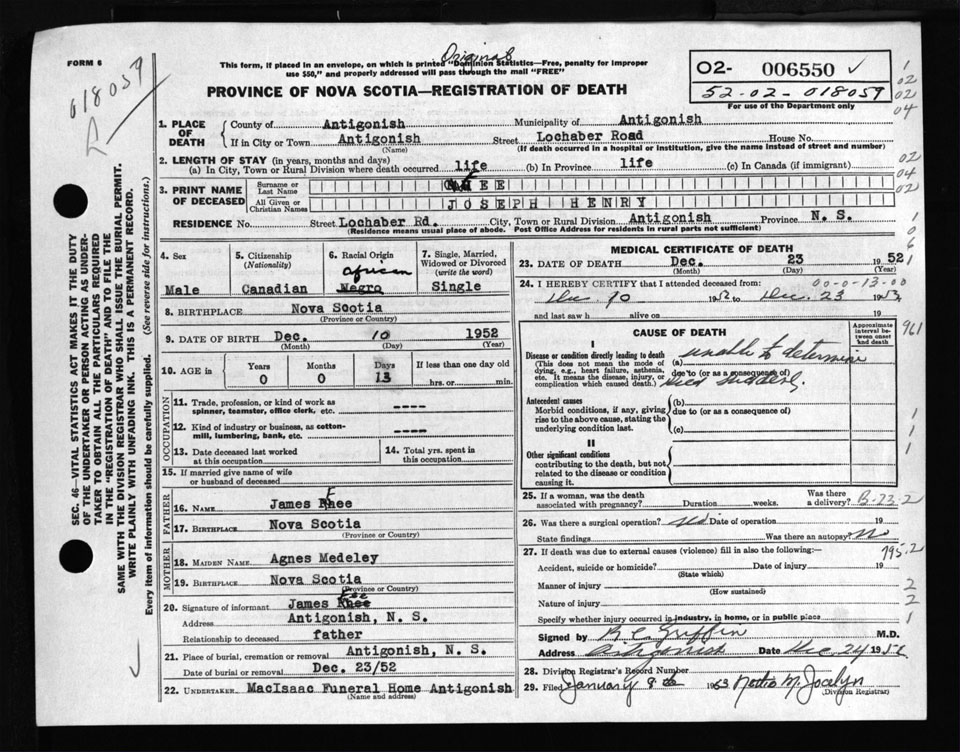 FORM 6
018059
Original
This form, if placed in an envelope, on which is printed "Dominion Statistics—Free, penalty for improper
use $50," and properly addressed will pass through the mail "FREE"
PROVINCE OF NOVA SCOTIA—REGISTRATION OF DEATH
02- 006550
52-02-018059
For use of the Department only
1. PLACE OF DEATH County of Antigonish Municipality of Antigonish
If in City or Town Antigonish Street Lochaber Road House No.
(Name) (If death occurred in a hospital or institution, give the name instead of street and number)
2. LENGTH OF STAY (in years, months and days)
(a) In City, Town or Rural Division where death occurred life (b) In Province life (c) In Canada (if immigrant)
3. PRINT NAME OF DECEASED
Surname or Last Name EE
All Given or Christian Names JOSEPH HENRY
RESIDENCE No. Street Lochaber Rd. City, Town or Rural Division Antigonish Province N. S.
(Residence means usual place of abode. Post Office Address for residents in rural parts not sufficient)
SEC. 46—VITAL STATISTICS ACT MAKES IT THE DUTY
OF THE UNDERTAKER OR PERSON ACTING AS UNDER-
TAKER TO OBTAIN ALL THE PARTICULARS REQUIRED
IN THE "REGISTRATION OF DEATH" AND TO FILE THE
SAME WITH THE DIVISION REGISTRAR WHO SHALL ISSUE THE BURIAL PERMIT.
WRITE PLAINLY WITH UNFADING INK. THIS IS A PERMANENT RECORD.
Every item of information should be carefully supplied. (See reverse side for instructions.)
4. Sex
Male
5. Citizenship
(Nationality)
Canadian
6. Racial Origin
African
Negro
7. Single, Married,
Widowed or Divorced
(write the word)
Single
8. BIRTHPLACE Nova Scotia
(Province or Country)
9. DATE OF BIRTH Dec. 10 1952
(Month) (Day) (Year)
10. AGE in Years Months Days If less than one day old
0 0 13 hrs. or min.
OCCUPATION
11. Trade, profession, or kind of work as
spinner, teamster, office clerk, etc. ----
12. Kind of industry or business, as cotton-
mill, lumbering, bank, etc. ----
13. Date deceased last worked
at this occupation
14. Total yrs. spent in
this occupation
15. If married give name of wife
or husband of deceased
FATHER
16. NAME James Rhee
17. BIRTHPLACE Nova Scotia
(Province or Country)
MOTHER
18. MAIDEN NAME Agnes Medeley
19. BIRTHPLACE Nova Scotia
(Province or Country)
20. Signature of informant James
Address Antigonish, N. S.
Relationship to deceased father
21. Place of burial, cremation or removal Antigonish, N. S.
Date of burial or removal Dec. 23/52
22. UNDERTAKER MacIsaac Funeral Home Antigonish
(Name and address)
MEDICAL CERTIFICATE OF DEATH
23. DATE OF DEATH Dec. 23 1952
(Month) (Day) (Year)
24. I HEREBY CERTIFY that I attended deceased from: 00-0-13-00
Dec. 10 1952 to Dec. 23 19
and last saw h alive on 19
CAUSE OF DEATH
Approximate
interval be-
tween onset
and death
I
Disease or condition directly leading to death
(This does not mean the mode of
dying, e.g., heart failure, asthenia,
etc. It means the disease, injury, or
complication which caused death.)
(a) unable to determine
due to (or as a consequence of)
died suddenly.
Antecedent causes
Morbid conditions, if any, giving
rise to the above cause, stating the
underlying condition last.
(b)
due to (or as a consequence of)
(c)
II
Other significant conditions
contributing to the death, but not
related to the disease or condition
causing it.
25. If a woman, was the death
associated with pregnancy? Duration weeks. Was there
a delivery? B-23-2
26. Was there a surgical operation? No Date of operation 19
State findings Was there an autopsy? No
27. If death was due to external causes (violence) fill in also the following:— 795.2
Accident, suicide or homicide? Date of injury 19
(State which)
Manner of injury
(How sustained)
Nature of injury
Specify whether injury occurred in industry, in home, or in public place
Signed by Griffin M.D.
Address Antigonish Date Dec. 24 1952
28. Division Registrar's Record Number
29. Filed January 8th 1953 M. Jocelyn
(Division Registrar)
1
02
02
04
02
04
02
1
0
6
1
961
1
1
1
2
2
1